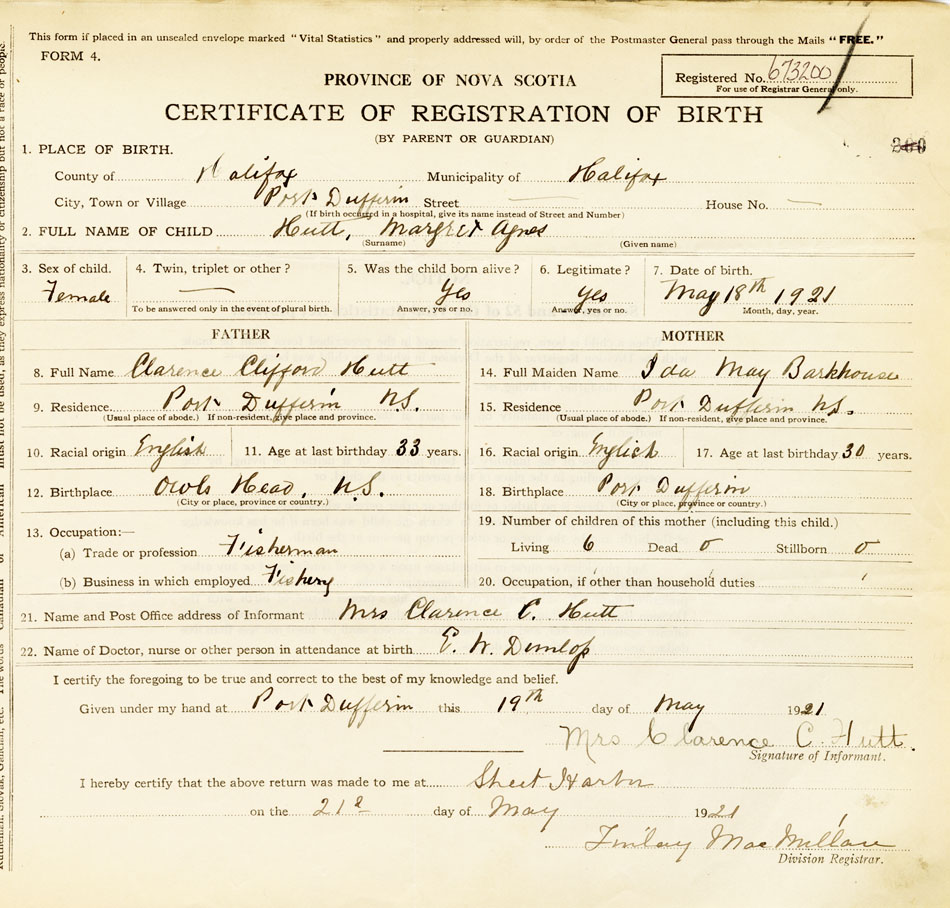 This form if placed in an unsealed envelope marked "Vital Statistics" and properly addressed will, by order of the Postmaster General pass through the Mails "FREE."
FORM 4.
Registered No. 673200
For use of Registrar General only.
PROVINCE OF NOVA SCOTIA
CERTIFICATE OF REGISTRATION OF BIRTH
(BY PARENT OR GUARDIAN)
200
1. PLACE OF BIRTH.
County of Halifax Municipality of Halifax
City, Town or Village Port Dufferin Street — House No. —
(If birth occurred in a hospital, give its name instead of Street and Number)
2. FULL NAME OF CHILD Hutt, Margret Agnes
(Surname) (Given name)
3. Sex of child. 4. Twin, triplet or other? 5. Was the child born alive? 6. Legitimate? 7. Date of birth.
Female — Yes Yes May 18th 1921
To be answered only in the event of plural birth. Answer, yes or no. Answer, yes or no. Month, day, year.
FATHER MOTHER
8. Full Name Clarence Clifford Hutt 14. Full Maiden Name Ida May Barkhouse
9. Residence Port Dufferin N.S. 15. Residence Port Dufferin N.S.
(Usual place of abode.) If non-resident, give place and province. (Usual place of abode.) If non-resident, give place and province.
10. Racial origin English 11. Age at last birthday 33 years. 16. Racial origin English 17. Age at last birthday 30 years.
12. Birthplace Owls Head, N.S. 18. Birthplace Port Dufferin
(City or place, province or country.) (City or place, province or country.)
13. Occupation:— 19. Number of children of this mother (including this child.)
(a) Trade or profession Fisherman Living 6 Dead 0 Stillborn 0
(b) Business in which employed Fishery 20. Occupation, if other than household duties
21. Name and Post Office address of Informant Mrs Clarence C. Hutt
22. Name of Doctor, nurse or other person in attendance at birth E. W. Dunlop
I certify the foregoing to be true and correct to the best of my knowledge and belief.
Given under my hand at Port Dufferin this 19th day of May 1921
Mrs Clarence C. Hutt.
Signature of Informant.
I hereby certify that the above return was made to me at Sheet Harbor
on the 21st day of May 1921
Finlay MacMillan
Division Registrar.